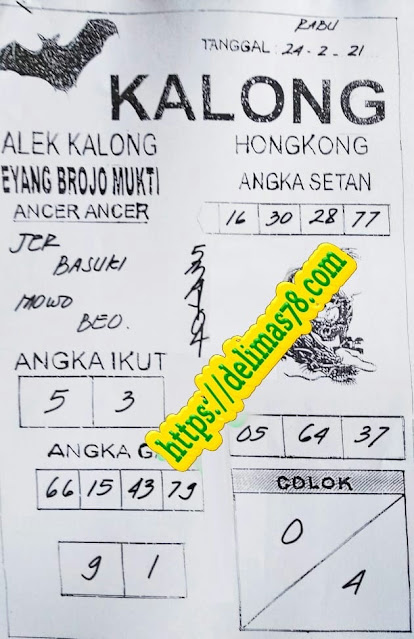 RABU
TANGGAL: 24-2-21
KALONG
ALEK KALONG
EYANG BROJO MUKTI
ANCER ANCER
JCR
BASUKI
MOWO
BEO.
HONGKONG
ANGKA SETAN
16 30 28 77
https://delimas78.com
ANGKA IKUT
5 3
ANGKA
66 15 43 79
9 1
05 64 37
COLOK
0
4